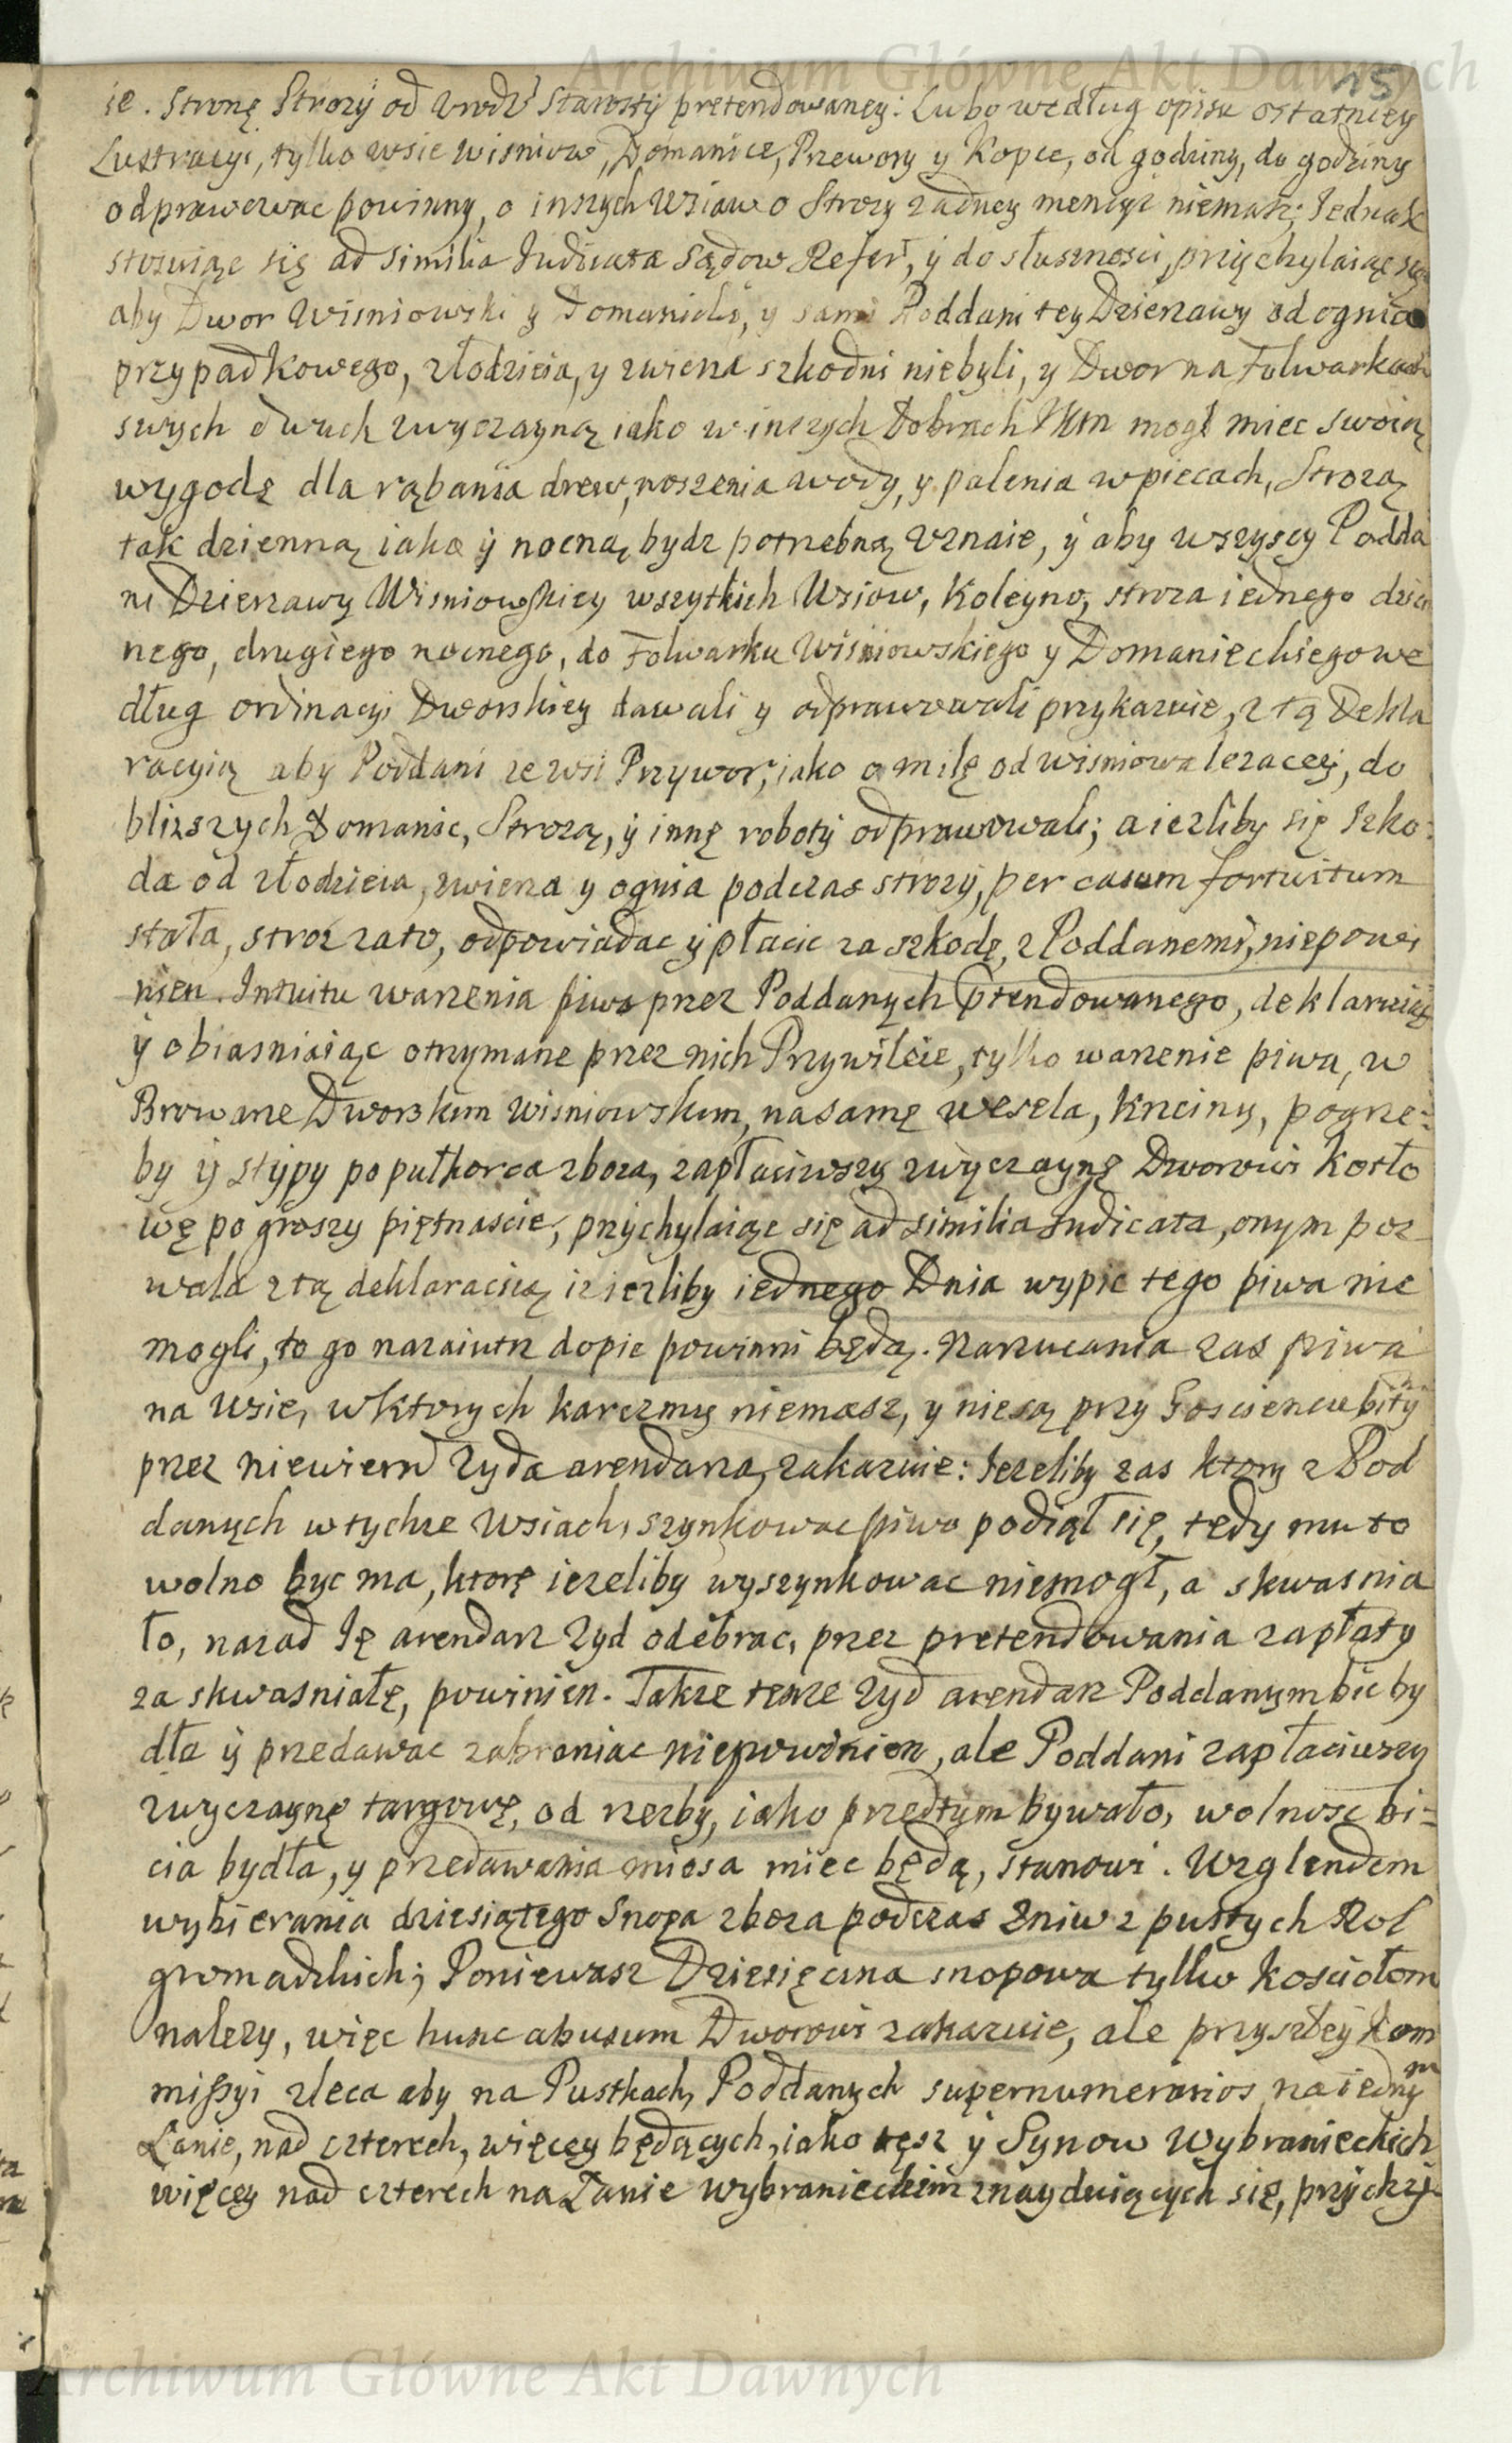 Archiwum Główne Akt Dawnych
15
ie. Stronę Strozÿ od Urodz Starosty pretendowaney: Lubo według opisu ostatniey
Lustracyi, tylko wsie Wisniow, Domanice, Przewory y Kopce, od godziny, do godziny
odprawowac powinny, o inszych Wsiaw o Strozy zadney mencyi niemasz; Iednak
stosuiąc się ad similia Iudicata Sądow Refer, ÿ do słusznosci, przychylaiąc się
aby Dwor Wisniowski y Domanicki, y sami Poddani tey Dzierzawy od ognia
przypadkowego, złodzieia, y zwierza szkodni niebyli, y Dwor na Folwarkach
swych dwuch zwyczayną iako w inszych Dobrach mogł miec swoię
wygodę dla rąbania drew, noszenia wody, y palenia w piecach, Strozą
tak dzienną iako ÿ nocną bydz potrzebną Uznaie, ÿ aby wszyscy Podda
ni Dzierzawy Wisniowskiey wszytkich Wsiow, koleyno, stroza iednego dzie
nego, drugiego nocnego, do Folwarku Wisniowskiego y Domanieckiego we
dług ordinacyi Dworskiey dawali y odprawowali przykazuie, z tą Dekla
racyią aby Poddani ze wsi Przywor, iako o milę od Wisniowa lezacey, do
blizszych Domanic, Strozą, ÿ innę roboty odprawowali; a iezliby się szko:
da od złodzieia, zwierza y ognia podczas strozy, per casum fortuitum
stała, stroz za to, odpowiadac ÿ płacic za szkodę, z Poddanemi, niepowi
nien. Intuitu warzenia piwa przez Poddanych ptendowanego, deklaruiąc
ÿ obiasniaiąc otrzymane przez nich Przywileie, tylko warzenie piwa, w
Browarze Dworskim Wisniowskim, na samę wesela, krzciny, pogrze:
by ÿ stypy po pułkorca zboza, zapłaciwszy zwyczaynę Dworowi kotło
wę po groszy piętnascie, przychylaiąc się ad similia Iudicata, onym poz
wala z tą deklaracią iz iezliby iednego Dnia wypic tego piwa nie
mogli, to go nazaiutrz dopic powinni będą. Narzucania zas piwa
na Wsie, w ktorych karczmy niemasz, y nie są przy Goscieńcu bity
przez niewiern Zyda arendarza, zakazuie: Iezeliby zas ktory z Pod
danych w tychze Wsiach, szynkowac piwo podiął się, tedy mu to
wolno byc ma, ktorę iezeliby wyszynkowac niemogł, a skwasnia
ło, nazad Ię arendarz Zyd odebrac, przez pretendowania zapłaty
za skwasniałę, powinien. Takze tenze Zyd arendarz Poddanym bic by
dła ÿ przedawac zabraniac niepowinien, ale Poddani zapłaciwszy
zwyczaynę targowę, od rzezby, iako przedtym bywało, wolnosc bi=
cia bydła, y przedawania mięsa miec będą, stanowi. Względem
wybierania dziesiątego Snopa zboza podczas Zniw z pustych Rol
gromadzkich; Poniewasz Dziesięcina snopowa tylko kosciołom
nalezy, więc hunc abusum Dworowi zakazuie, ale przyszłey Kom
mißyi zleca aby na Pustkach, Poddanych supernumerarios na iednym
Łanie, nad czterech, więcey będących, iako tęsz ÿ Synow Wybranieckich
więcey nad czterech na Łanie wybranieckim znayduiących się, przykry-
Archiwum Główne Akt Dawnych